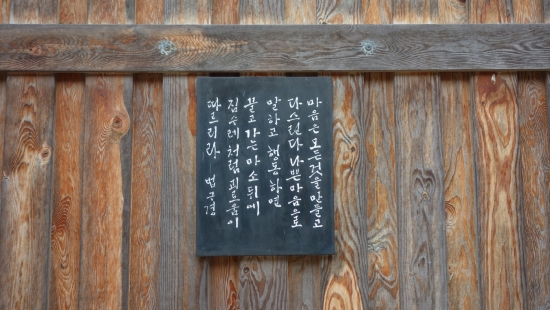 마음은 모든것을 만들고
다스린다 나쁜마음으로
말하고 행동하면
끌고가는 마소뒤에
짐수레처럼 괴로움이
따르리라 법구경